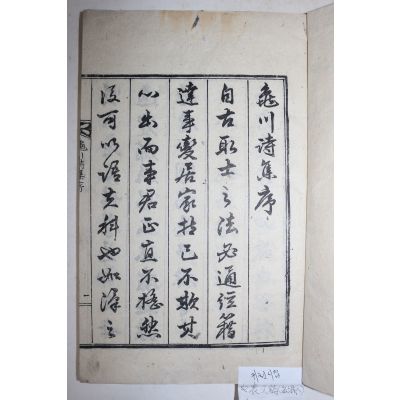 龜川詩集序
自古取士之法必通經籍
達事變居家持己不欺其
心出而事君正直不撓然
後可以語其科也如澤之
龜川詩集序
一